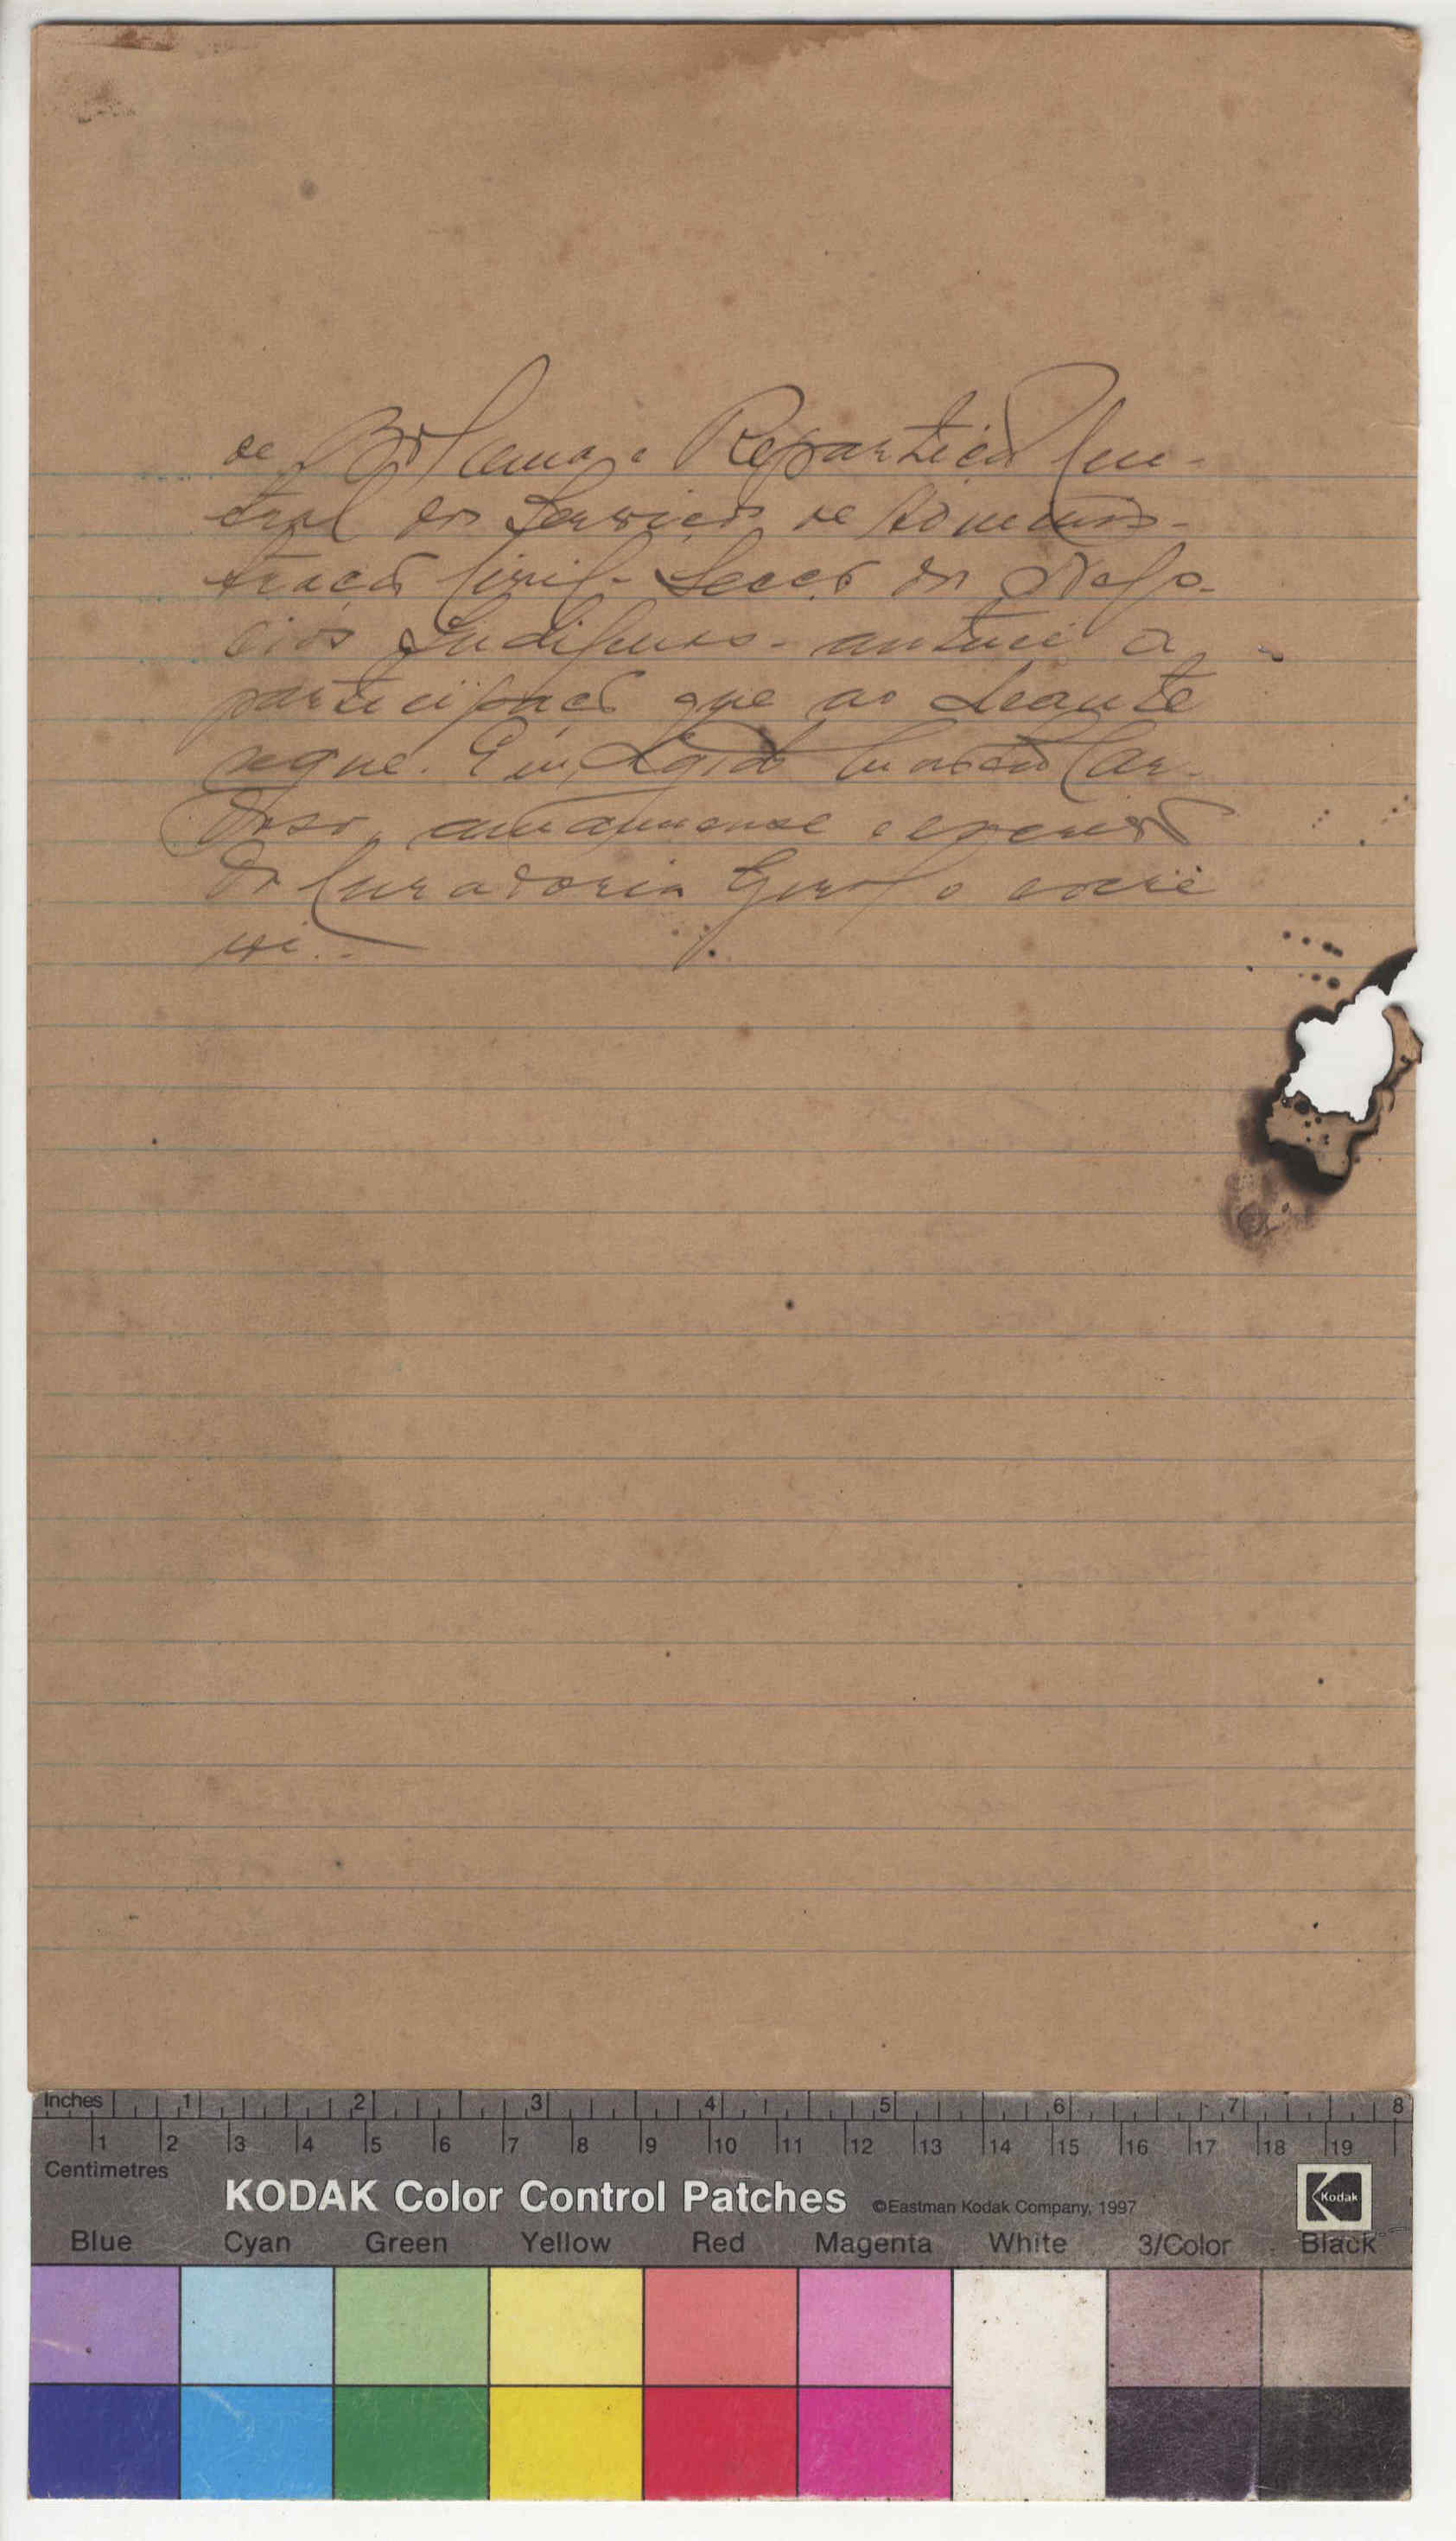 de Bolama e Repartição Cen-
tral dos Serviços de Adminis-
tração Civil - Secção dos Nego-
cios Indigenas - autuei a
participação que ao deante
segue. E eu, Cardoso
amanuense e escrivão
da Curadoria Geral o escre
vi. -
Inches 1 2 3 4 5 6 7 8
1 2 3 4 5 6 7 8 9 10 11 12 13 14 15 16 17 18 19
Centimetres
KODAK Color Control Patches ©Eastman Kodak Company, 1997 Kodak
Blue Cyan Green Yellow Red Magenta White 3/Color Black